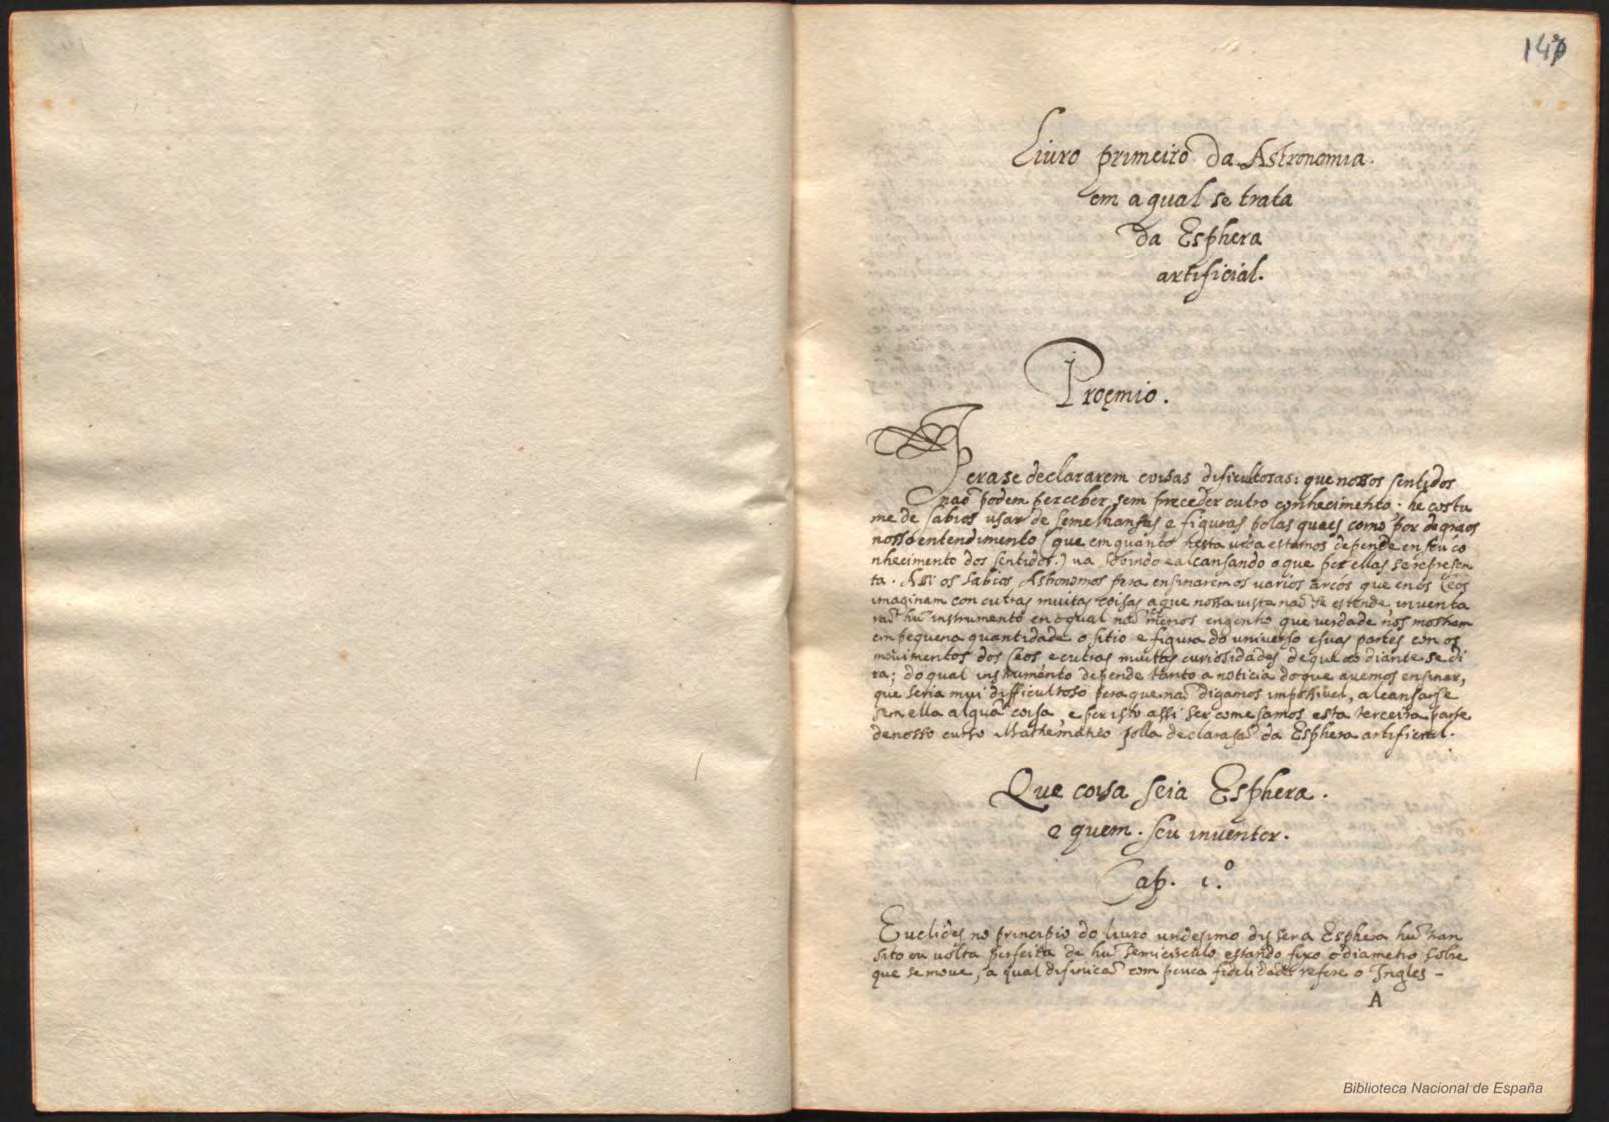 147
Livro primeiro da Astronomia.
em a qual se trata
da Esphera
artificial.
Proęmio.
Pera se declararem coisas dificultosas: que nossos sentidos
naõ podem perceber, sem preceder outro conhecimento; he costu
me de sabios usar de semelhansas e figuras polas quaes como por degraos
nosso entendimento (que em quanto nesta vida estamos depende en seu co
nhecimento dos sentidos.) va sobindo e alcansando o que por ellas se represen
ta. Assi os sabios Astronomos pera ensinarem os varios arcos que en os Ceos
imaginam con outras muitas coisas a que nossa vista naõ se estende, inventa
raõ hu~ instrumento en o qual naõ menos engenho que verdade nos mostram
em pequena quantidade o sitio e figura do universo e suas partes con os
movimentos dos Ceos e outras muitas curiosidades de que ao diante se di
ra; do qual instrumento depende tanto a noticia do que avemos ensinar,
que seria mui difficultoso pera que naõ digamos impossivel, alcansarse
sem ella algua~ coisa, e por isto assi ser comesamos esta terceira parte
de nosso curso Mathematico polla declarasaõ da Esphera artificial.
Que coisa seia Esphera.
e quem. seu inventor.
Cap. 1.º
Euclides no principio do livro undesimo dis sera Esphera hu~ tran
sito ou volta perfeita de hu~ semicirculo estando fixo o diametro sobre
que se move, a qual difinicaõ com pouca fidelidade refere o Ingles -
A
Biblioteca Nacional de España